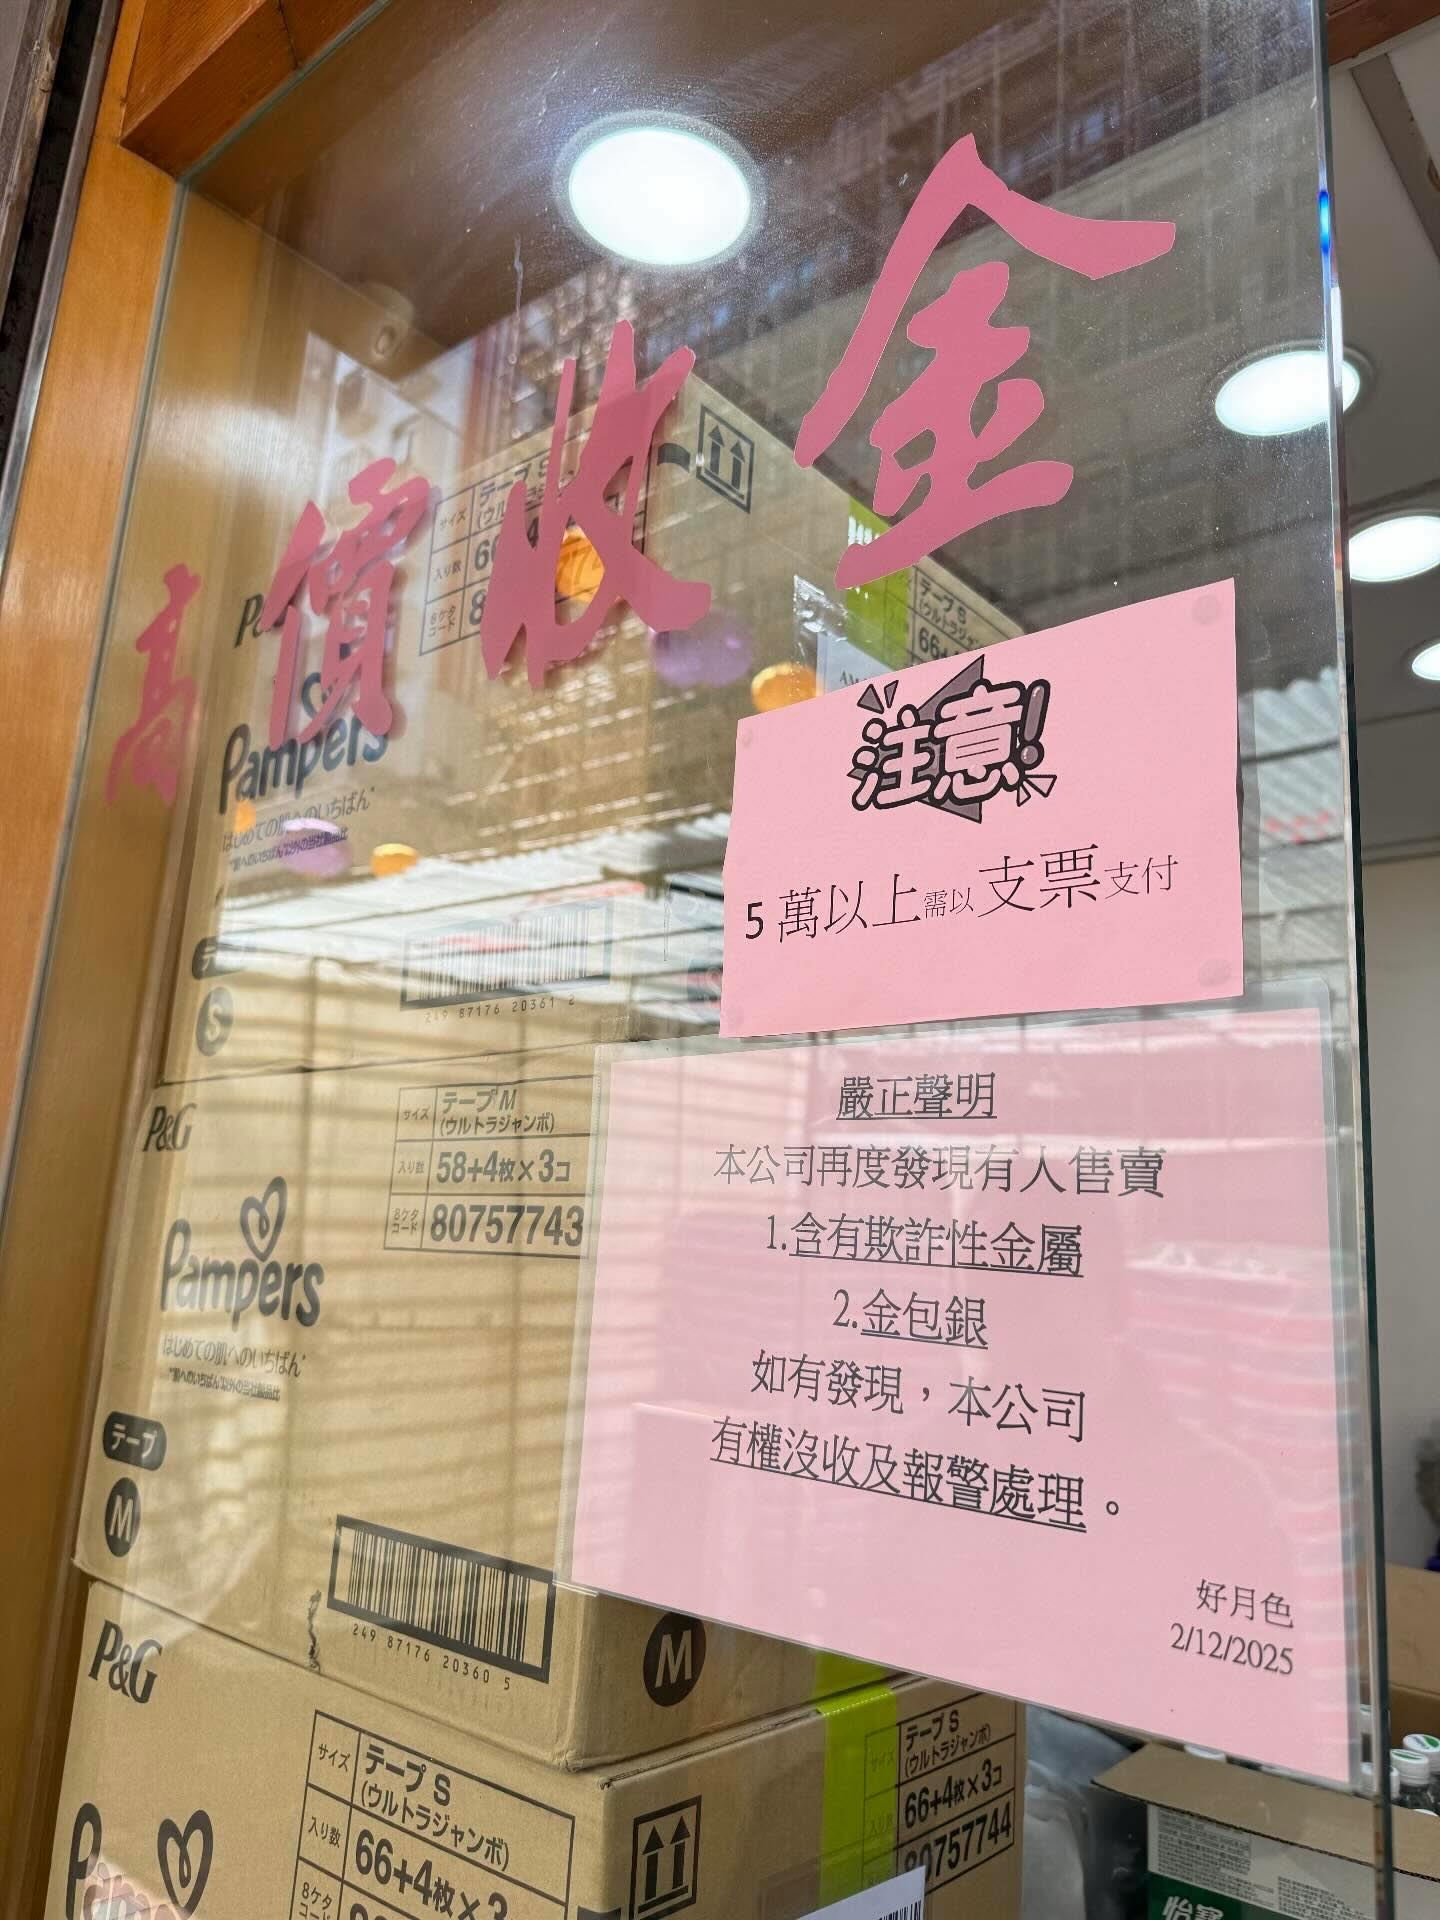 高價收金
注意!
5萬以上需以支票支付
嚴正聲明
本公司再度發現有人售賣
1.含有欺詐性金屬
2.金包銀
如有發現，本公司
有權沒收及報警處理。
好月色
2/12/2025
サイズ
テープS
入り数
8ケタ
コード
テープS
(ウルトラジャンボ)
Pampers
はじめての肌へのいちばん*
249 87176 20361 2
S
P&G
サイズ テープM
(ウルトラジャンボ)
入り数 58+4枚×3コ
8ケタ
コード 80757743
Pampers
はじめての肌へのいちばん*
テープ
M
249 87176 20360 5
M
P&G
サイズ テープS
(ウルトラジャンボ)
入り数 66+4枚×3
8ケタ
コード
サイズ テープS
(ウルトラジャンボ)
66+4枚×3コ
80757744
怡寶